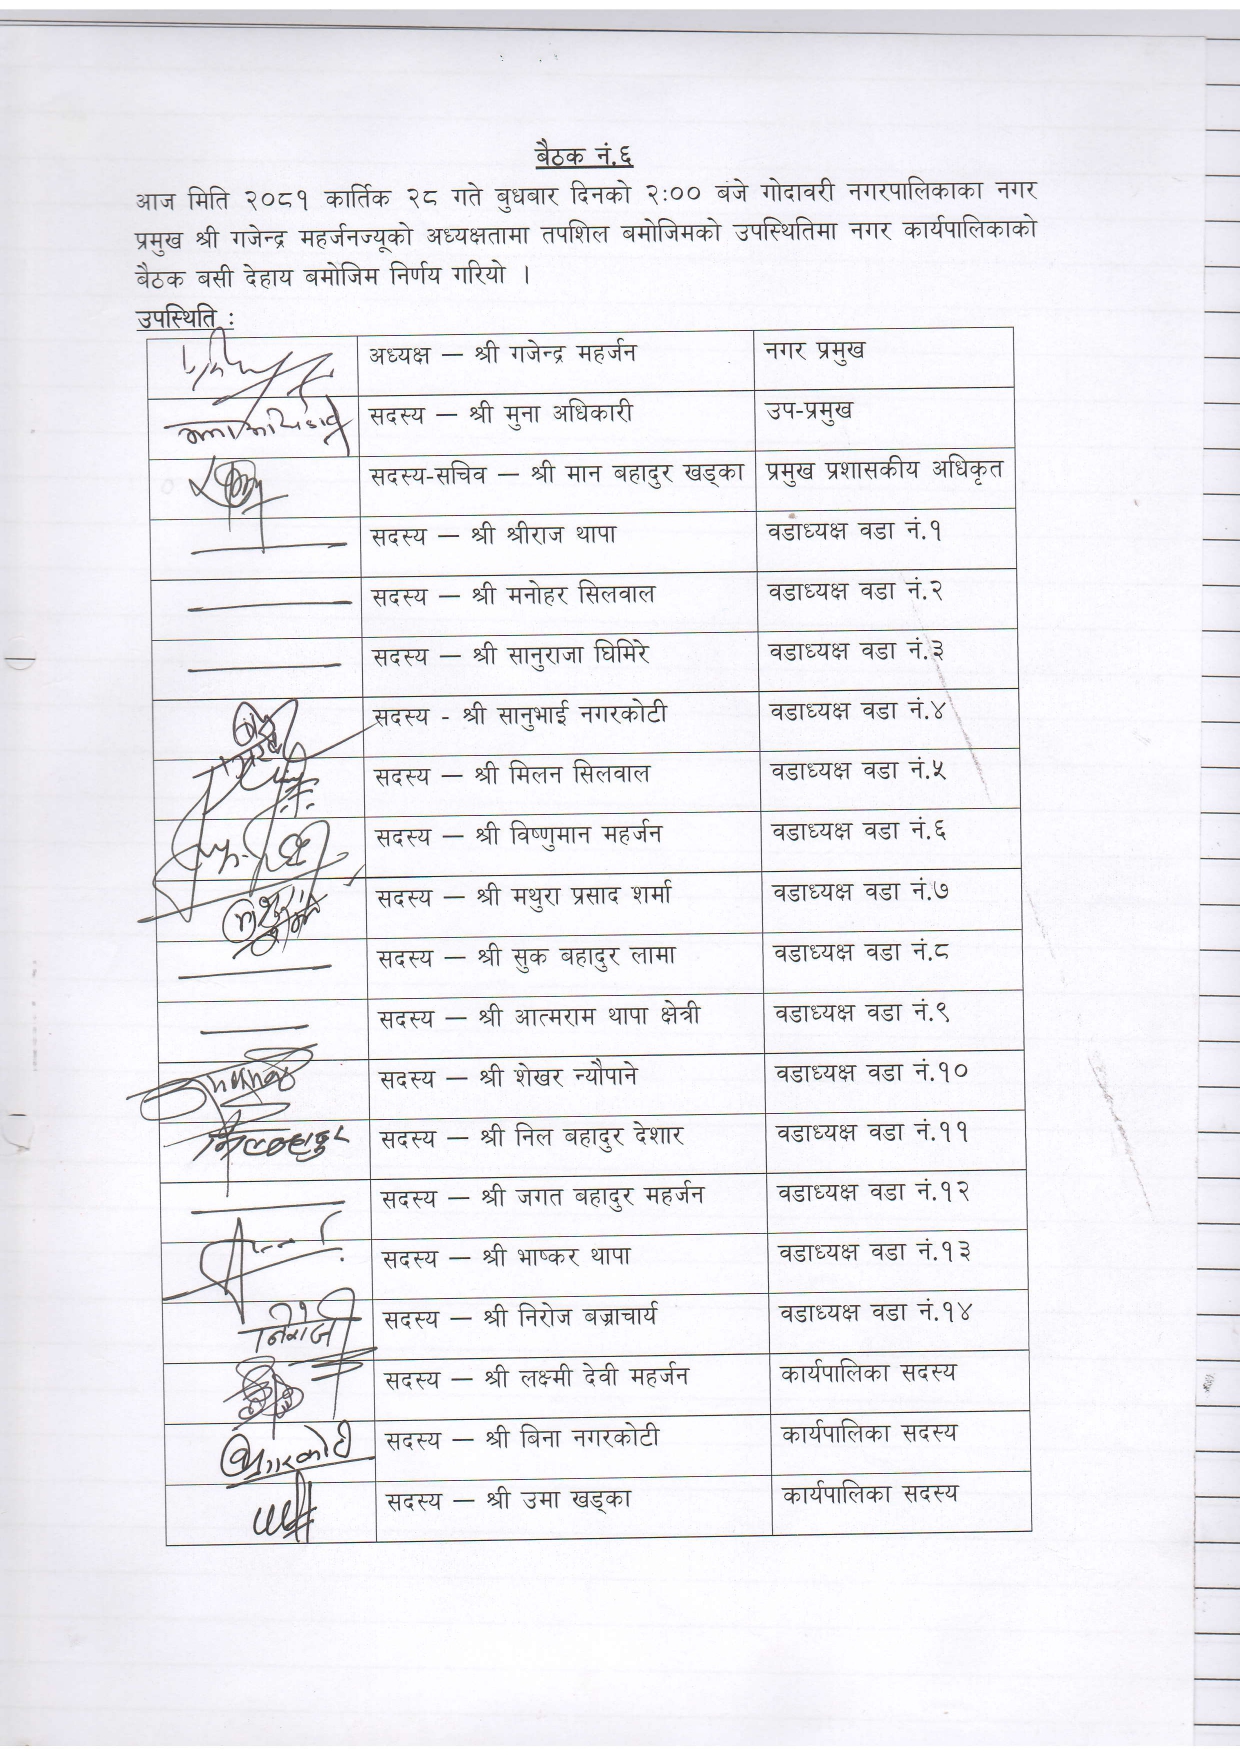 बैठक नं.६
आज मिति २०८१ कार्तिक २८ गते बुधबार दिनको २:०० बजे गोदावरी नगरपालिकाका नगर
प्रमुख श्री गजेन्द्र महर्जनज्यूको अध्यक्षतामा तपशिल बमोजिमको उपस्थितिमा नगर कार्यपालिकाको
बैठक बसी देहाय बमोजिम निर्णय गरियो ।
उपस्थिति :
अध्यक्ष – श्री गजेन्द्र महर्जन नगर प्रमुख
सदस्य – श्री मुना अधिकारी उप-प्रमुख
सदस्य-सचिव – श्री मान बहादुर खड्का प्रमुख प्रशासकीय अधिकृत
सदस्य – श्री श्रीराज थापा वडाध्यक्ष वडा नं.१
सदस्य – श्री मनोहर सिलवाल वडाध्यक्ष वडा नं.२
सदस्य – श्री सानुराजा घिमिरे वडाध्यक्ष वडा नं.३
सदस्य - श्री सानुभाई नगरकोटी वडाध्यक्ष वडा नं.४
सदस्य – श्री मिलन सिलवाल वडाध्यक्ष वडा नं.५
सदस्य – श्री विष्णुमान महर्जन वडाध्यक्ष वडा नं.६
सदस्य – श्री मथुरा प्रसाद शर्मा वडाध्यक्ष वडा नं.७
सदस्य – श्री सुक बहादुर लामा वडाध्यक्ष वडा नं.८
सदस्य – श्री आत्मराम थापा क्षेत्री वडाध्यक्ष वडा नं.९
सदस्य – श्री शेखर न्यौपाने वडाध्यक्ष वडा नं.१०
सदस्य – श्री निल बहादुर देशार वडाध्यक्ष वडा नं.११
सदस्य – श्री जगत बहादुर महर्जन वडाध्यक्ष वडा नं.१२
सदस्य – श्री भाष्कर थापा वडाध्यक्ष वडा नं.१३
निरोज सदस्य – श्री निरोज बज्राचार्य वडाध्यक्ष वडा नं.१४
सदस्य – श्री लक्ष्मी देवी महर्जन कार्यपालिका सदस्य
सदस्य – श्री बिना नगरकोटी कार्यपालिका सदस्य
सदस्य – श्री उमा खड्का कार्यपालिका सदस्य